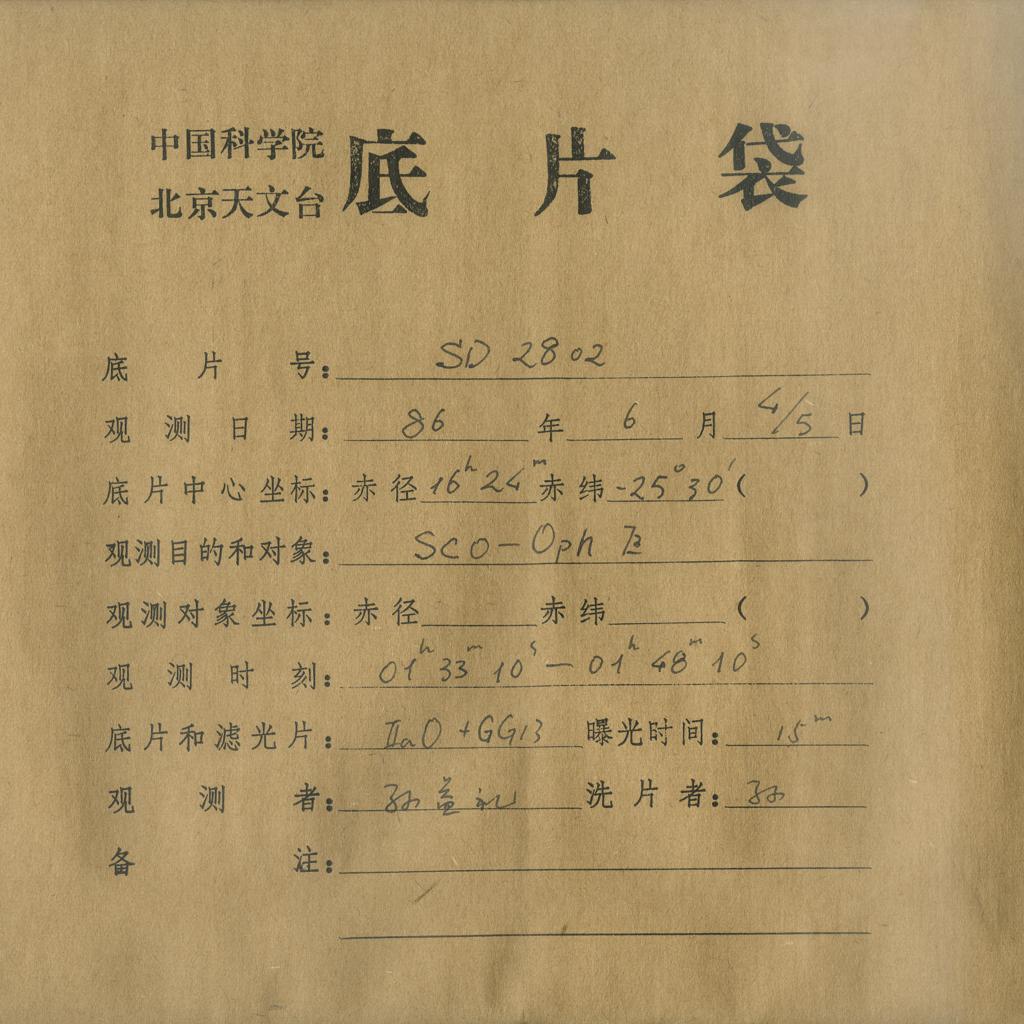 中国科学院
北京天文台
底片袋
底片号： SD 2802
观测日期： 86 年 6 月 4/5 日
底片中心坐标： 赤径 16h 24m 赤纬 -25° 30′ ( )
观测目的和对象： Sco-Oph 区
观测对象坐标： 赤径 赤纬 ( )
观测时刻： 01h 33m 10s — 01h 48m 10s
底片和滤光片： IIaO + GG13 曝光时间： 15m
观测者： 孙益礼 洗片者： 孙
备注：